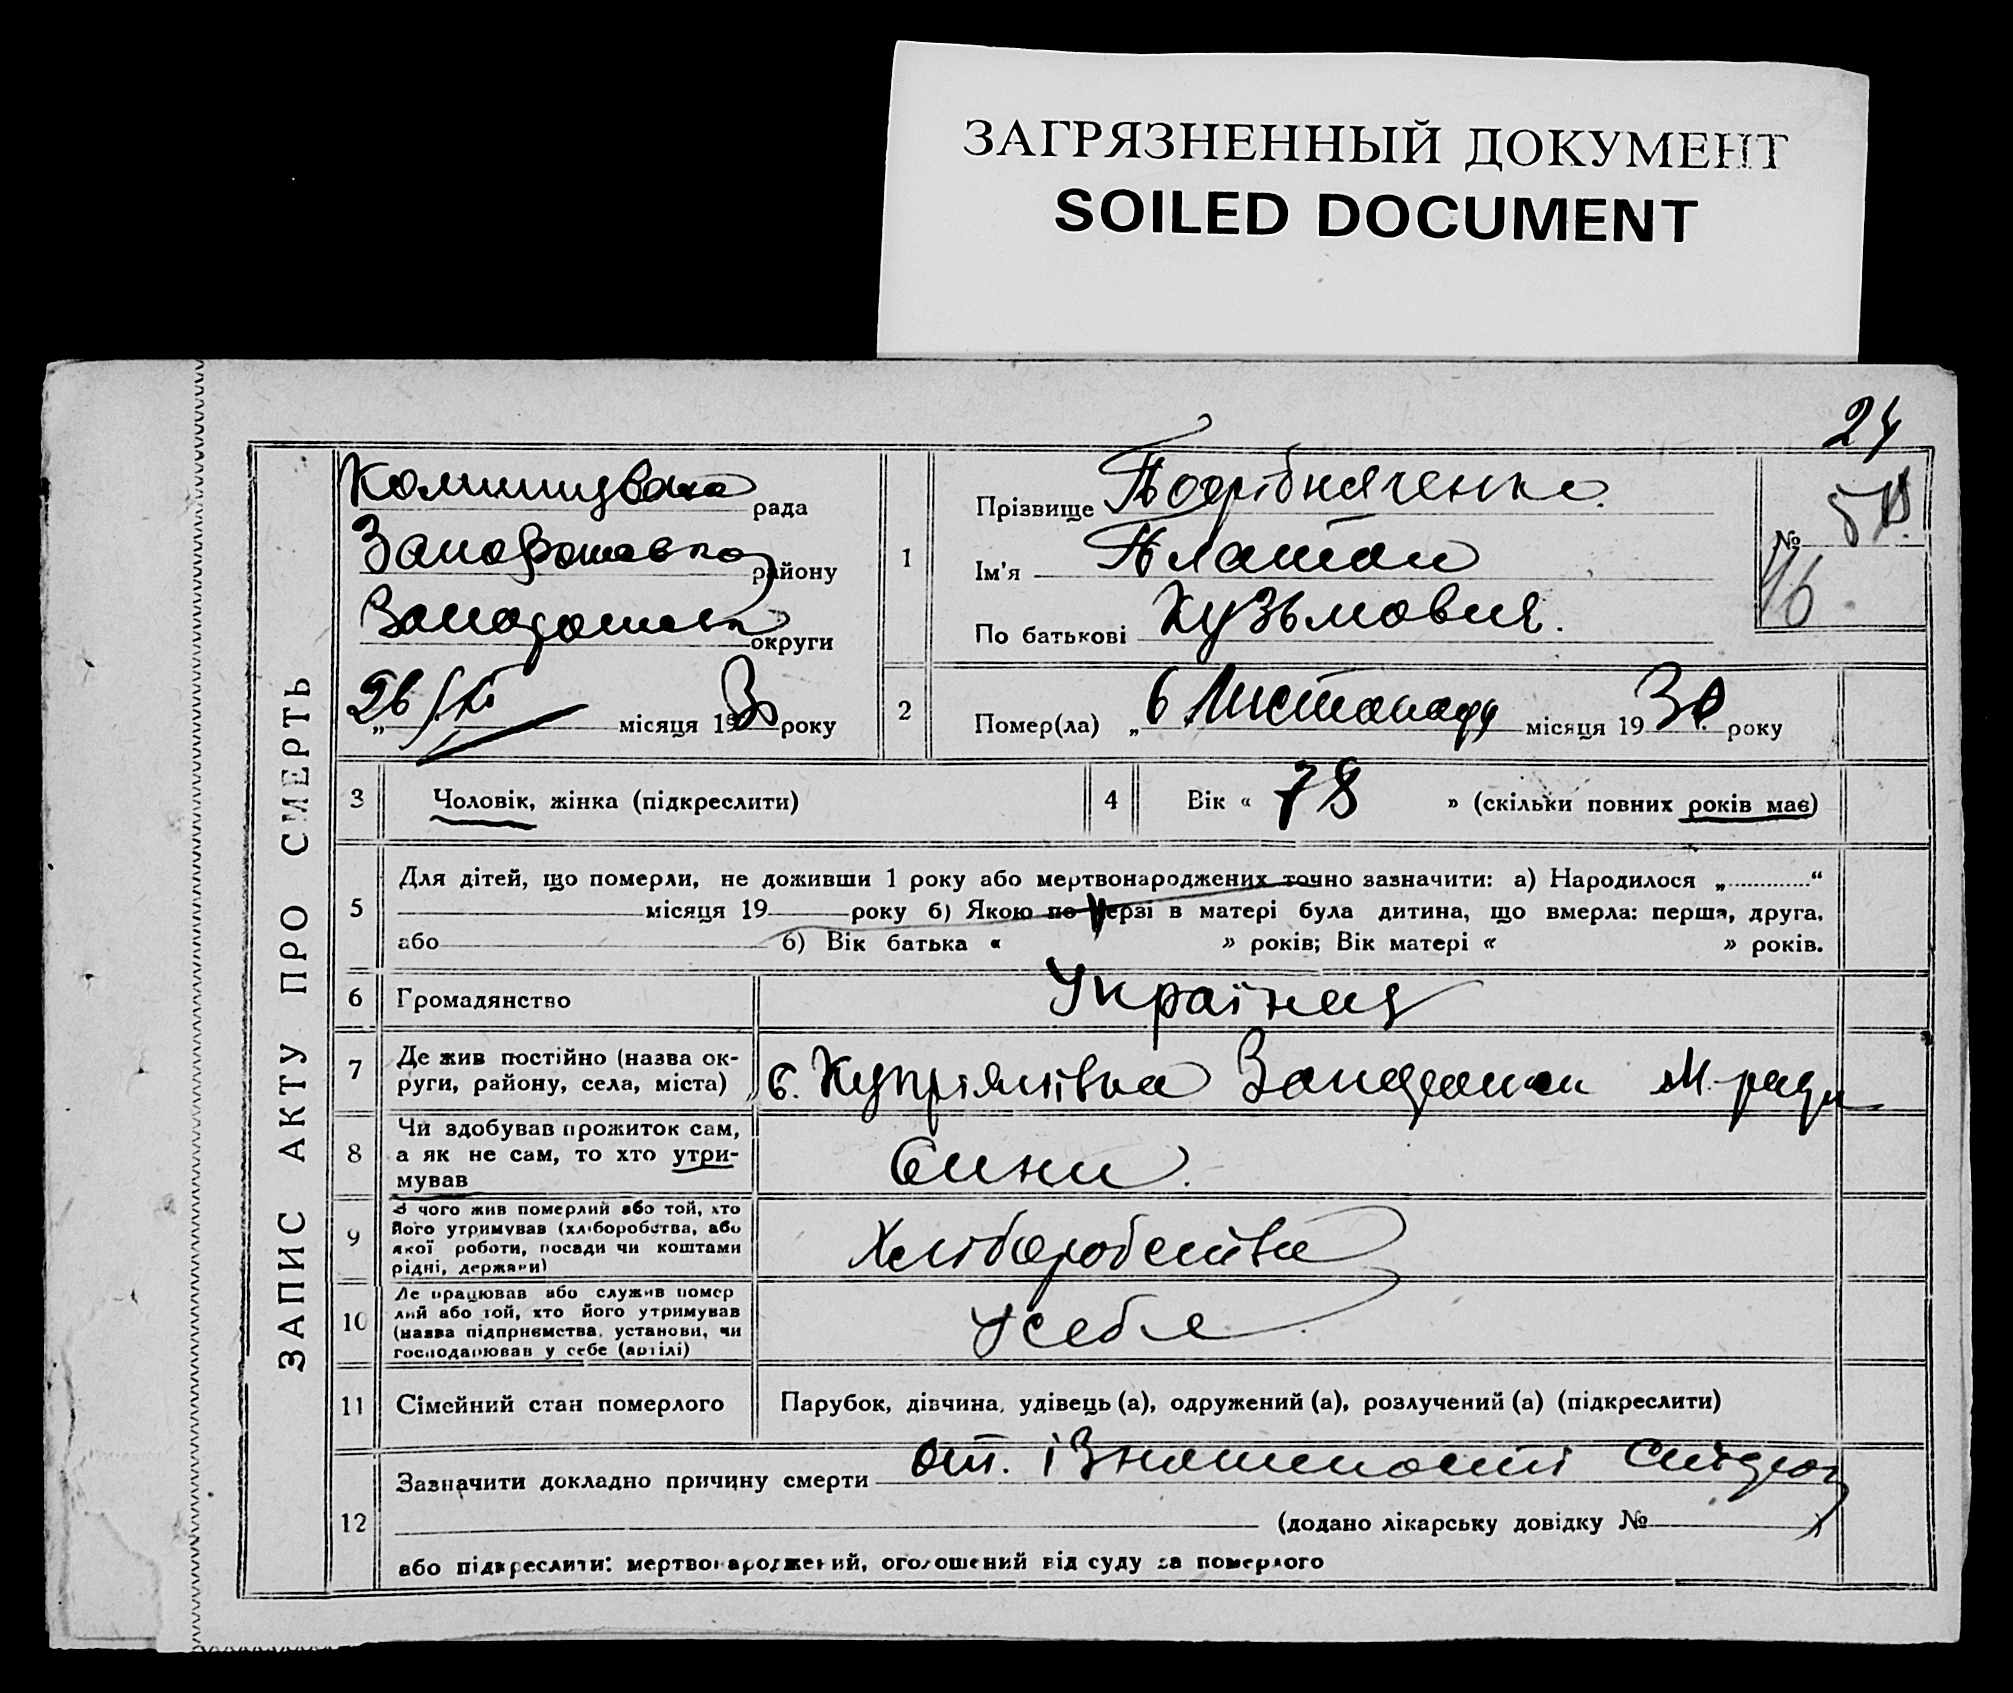 ЗАГРЯЗНЕННЫЙ ДОКУМЕНТ
SOILED DOCUMENT
24
ЗАПИС АКТУ ПРО СМЕРТЬ
Комишувана рада
району
округи
26/XI місяця 1930 року
1
Прізвище Подрібняченко.
Ім'я Платон
По батькові Кузьмович.
№
46
2
Помер(ла) „ 6 Листопаду місяця 1930 року
3
Чоловік, жінка (підкреслити)
4
Вік « 78 » (скільки повних років має)
5
Для дітей, що померли, не доживши 1 року або мертвонароджених точно зазначити: а) Народилося „............“
місяця 19 року б) Якою по черзі в матері була дитина, що вмерла: перша, друга,
або б) Вік батька « » років; Вік матері « » років.
6
Громадянство Українец
7
Де жив постійно (назва ок-
руги, району, села, міста) с. Купріянівка М. ради
8
Чи здобував прожиток сам,
а як не сам, то хто утри-
мував Сини.
9
З чого жив померлий або той, хто
його утримував (хліборобства, або
якої роботи, посади чи коштами
рідні, держави) Хліборобства
10
Де працював або служив помер
лий або той, хто його утримував
(назва підприємства, установи, чи
господарював у себе (артілі) У себе
11
Сімейний стан померлого Парубок, дівчина, удівець (а), одружений (а), розлучений (а) (підкреслити)
12
Зазначити докладно причину смерти от.
(додано лікарську довідку № )
або підкреслити: мертвонароджений, оголошений від суду за померлого